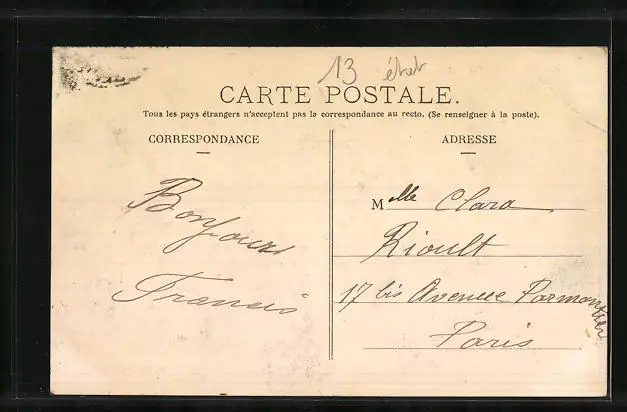 13 état
CARTE POSTALE.
Tous les pays étrangers n'acceptent pas la correspondance au recto. (Se renseigner à la poste).
CORRESPONDANCE
Bonjour
Francis
ADRESSE
Melle Clara
Rioult
17 bis Avenue Parmentier
Paris